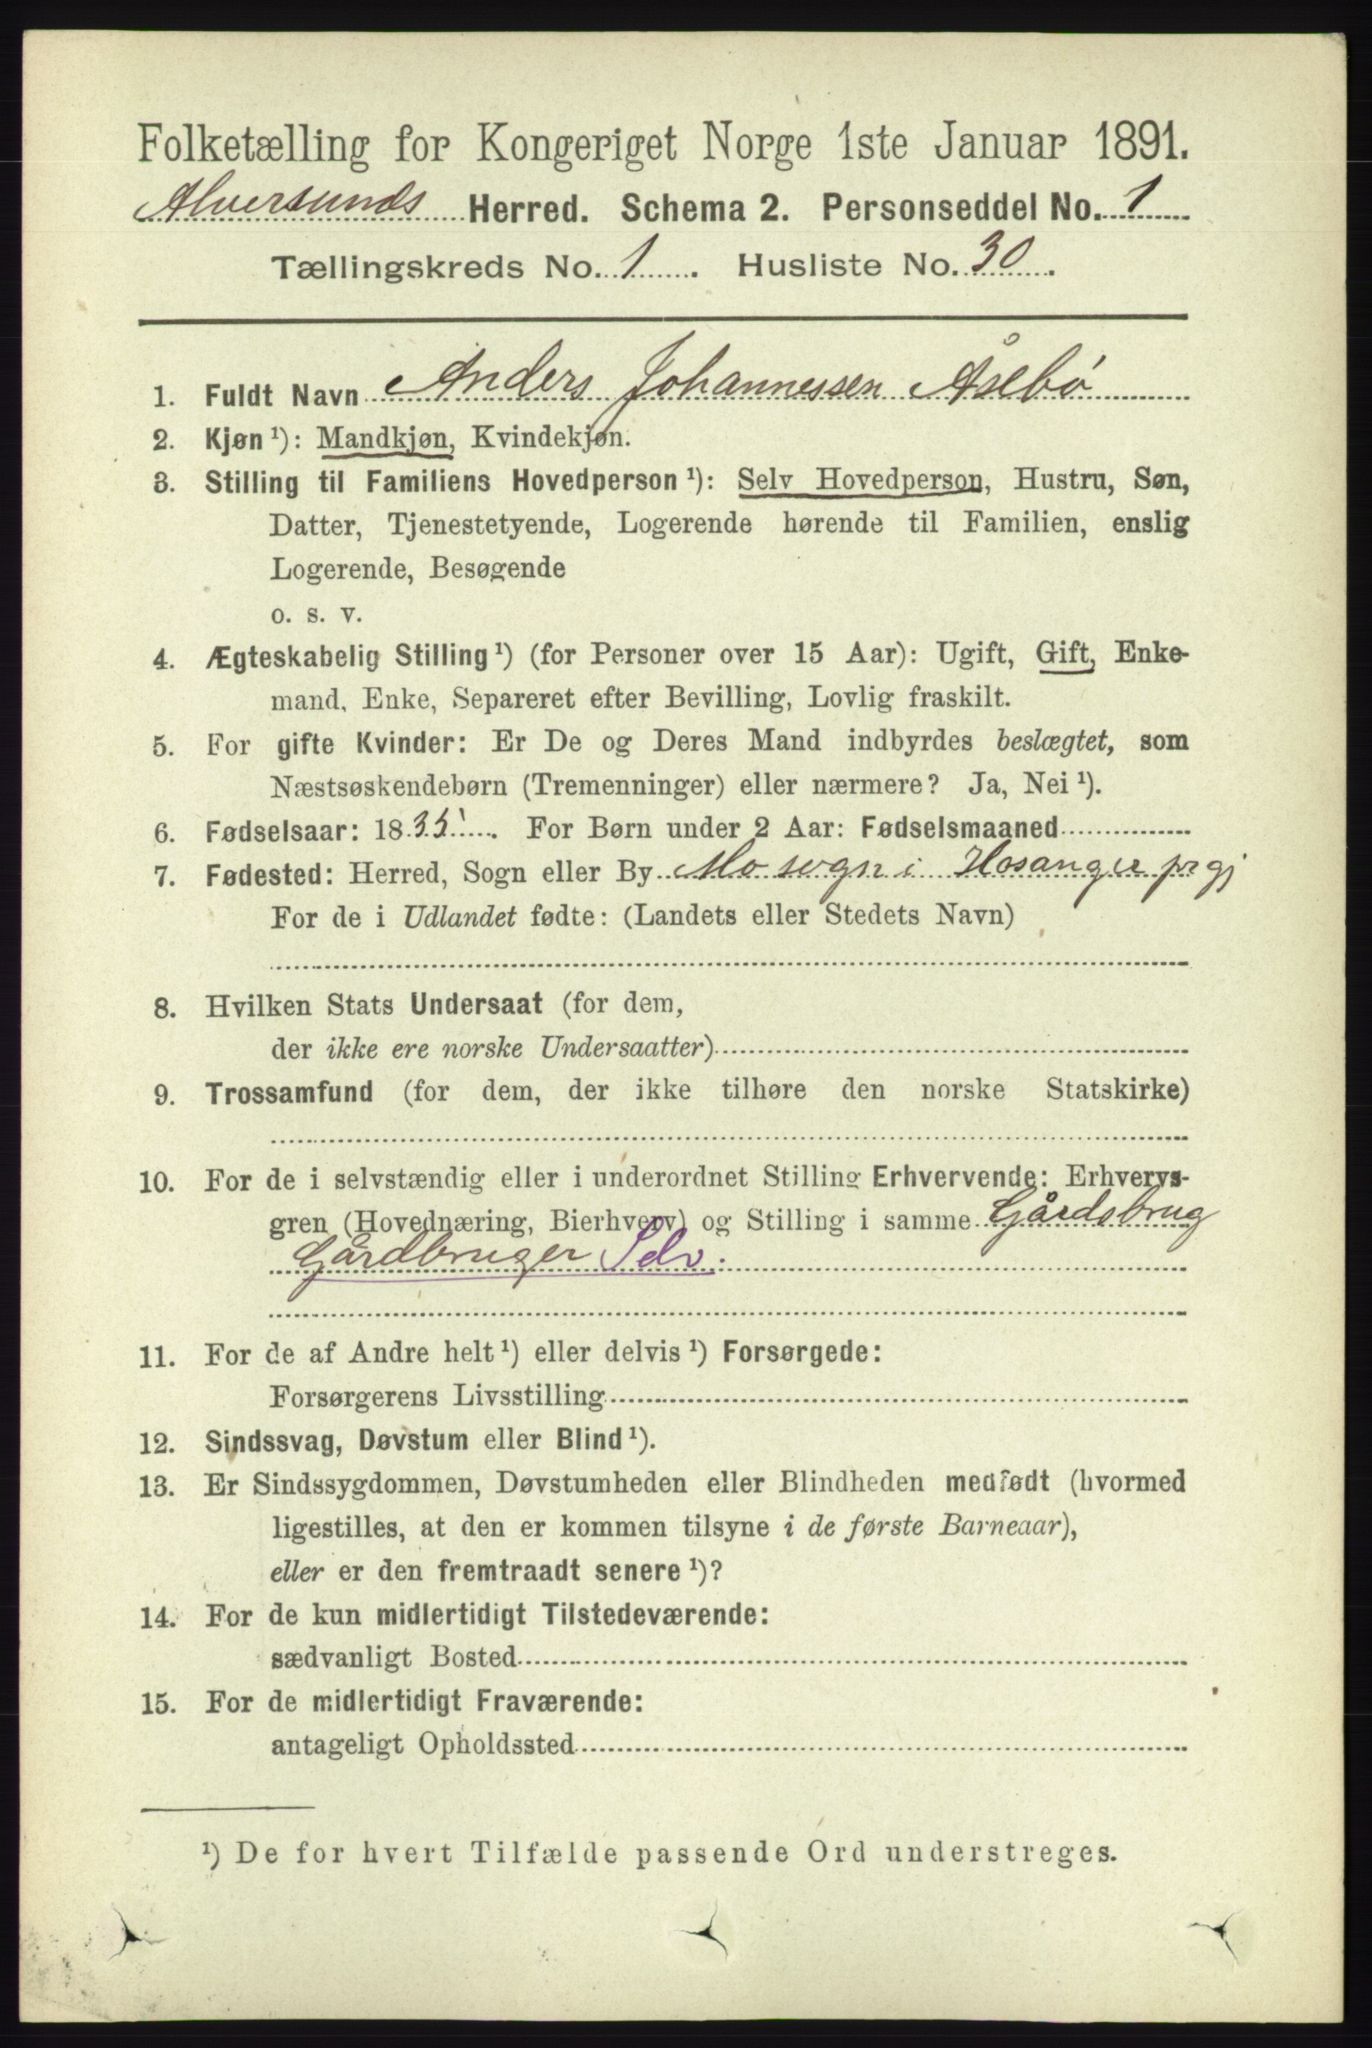 Folketælling for Kongeriget Norge 1ste Januar 1891.
Alversunds Herred. Schema 2. Personseddel No. 1
Tællingskreds No. 1. Husliste No. 30.
1. Fuldt Navn Anders Johannessen Åsebø
2. Kjøn ¹): Mandkjøn, Kvindekjøn.
3. Stilling til Familiens Hovedperson ¹): Selv Hovedperson, Hustru, Søn,
Datter, Tjenestetyende, Logerende hørende til Familien, enslig
Logerende, Besøgende
o. s. v.
4. Ægteskabelig Stilling ¹) (for Personer over 15 Aar): Ugift, Gift, Enke-
mand, Enke, Separeret efter Bevilling, Lovlig fraskilt.
5. For gifte Kvinder: Er De og Deres Mand indbyrdes beslægtet, som
Næstsøskendebørn (Tremenninger) eller nærmere? Ja, Nei ¹).
6. Fødselsaar: 1835. For Børn under 2 Aar: Fødselsmaaned
7. Fødested: Herred, Sogn eller By Mo sogn i Hosanger prgj
For de i Udlandet fødte: (Landets eller Stedets Navn)
8. Hvilken Stats Undersaat (for dem,
der ikke ere norske Undersaatter)
9. Trossamfund (for dem, der ikke tilhøre den norske Statskirke)
10. For de i selvstændig eller i underordnet Stilling Erhvervende: Erhvervs-
gren (Hovednæring, Bierhverv) og Stilling i samme Gårdsbrug
Gårdbruger Selv.
11. For de af Andre helt ¹) eller delvis ¹) Forsørgede:
Forsørgerens Livsstilling
12. Sindssvag, Døvstum eller Blind ¹).
13. Er Sindssygdommen, Døvstumheden eller Blindheden medfødt (hvormed
ligestilles, at den er kommen tilsyne i de første Barneaar),
eller er den fremtraadt senere ¹)?
14. For de kun midlertidigt Tilstedeværende:
sædvanligt Bosted
15. For de midlertidigt Fraværende:
antageligt Opholdssted
¹) De for hvert Tilfælde passende Ord understreges.